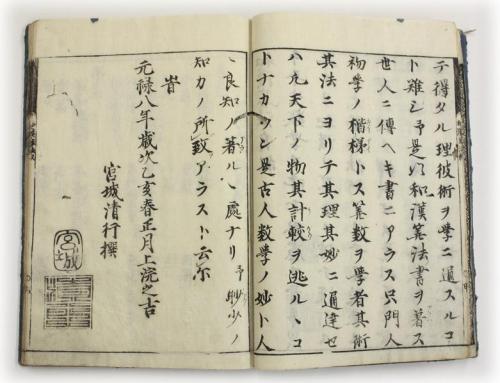 テ得タル理彼術ヲ学ニ通スルコ
ト難シ予是以和漢筭法書ヲ著ス
世人ニ傳ヘキ書ニアラス只門人
初學ノ楷梯トス筭数ヲ學者其術
其法ニヨリテ其理其妙ニ通達セ
ハ凢天下ノ物其計較ヲ逃ルヽコ
トナカラン是古人数學ノ妙ト人
ヽ良知ノ著ルヽ處ナリ予眇少ノ
知カノ所致アラスト云尓
旹
元禄八年歳次乙亥春正月上浣之吉
宮城清行撰
宮城